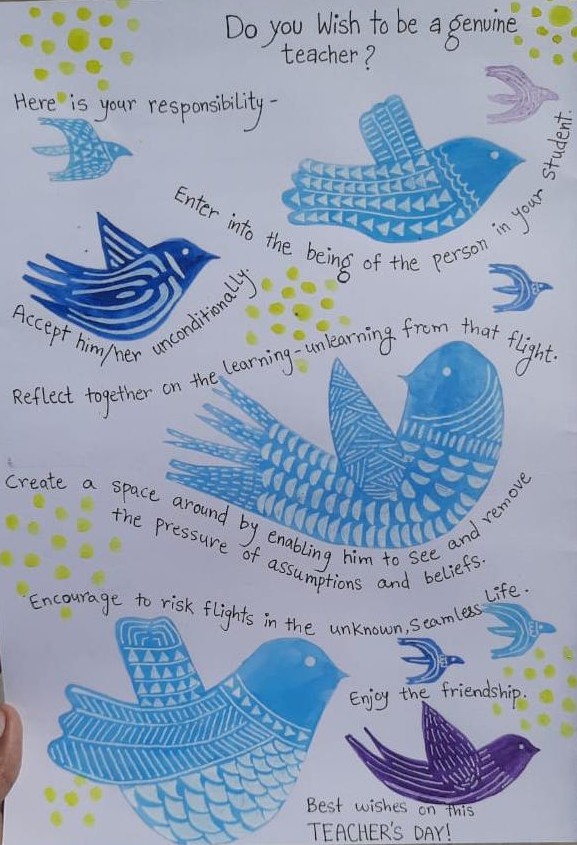 Do you Wish to be a genuine
teacher?
Here is your responsibility-
Enter into the being of the person in your student.
Accept him/her unconditionally.
Reflect together on the learning-unlearning from that flight.
Create a space around by enabling him to see and remove
the pressure of assumptions and beliefs.
Encourage to risk flights in the unknown, seamless Life.
Enjoy the friendship.
Best wishes on this
TEACHER'S DAY!